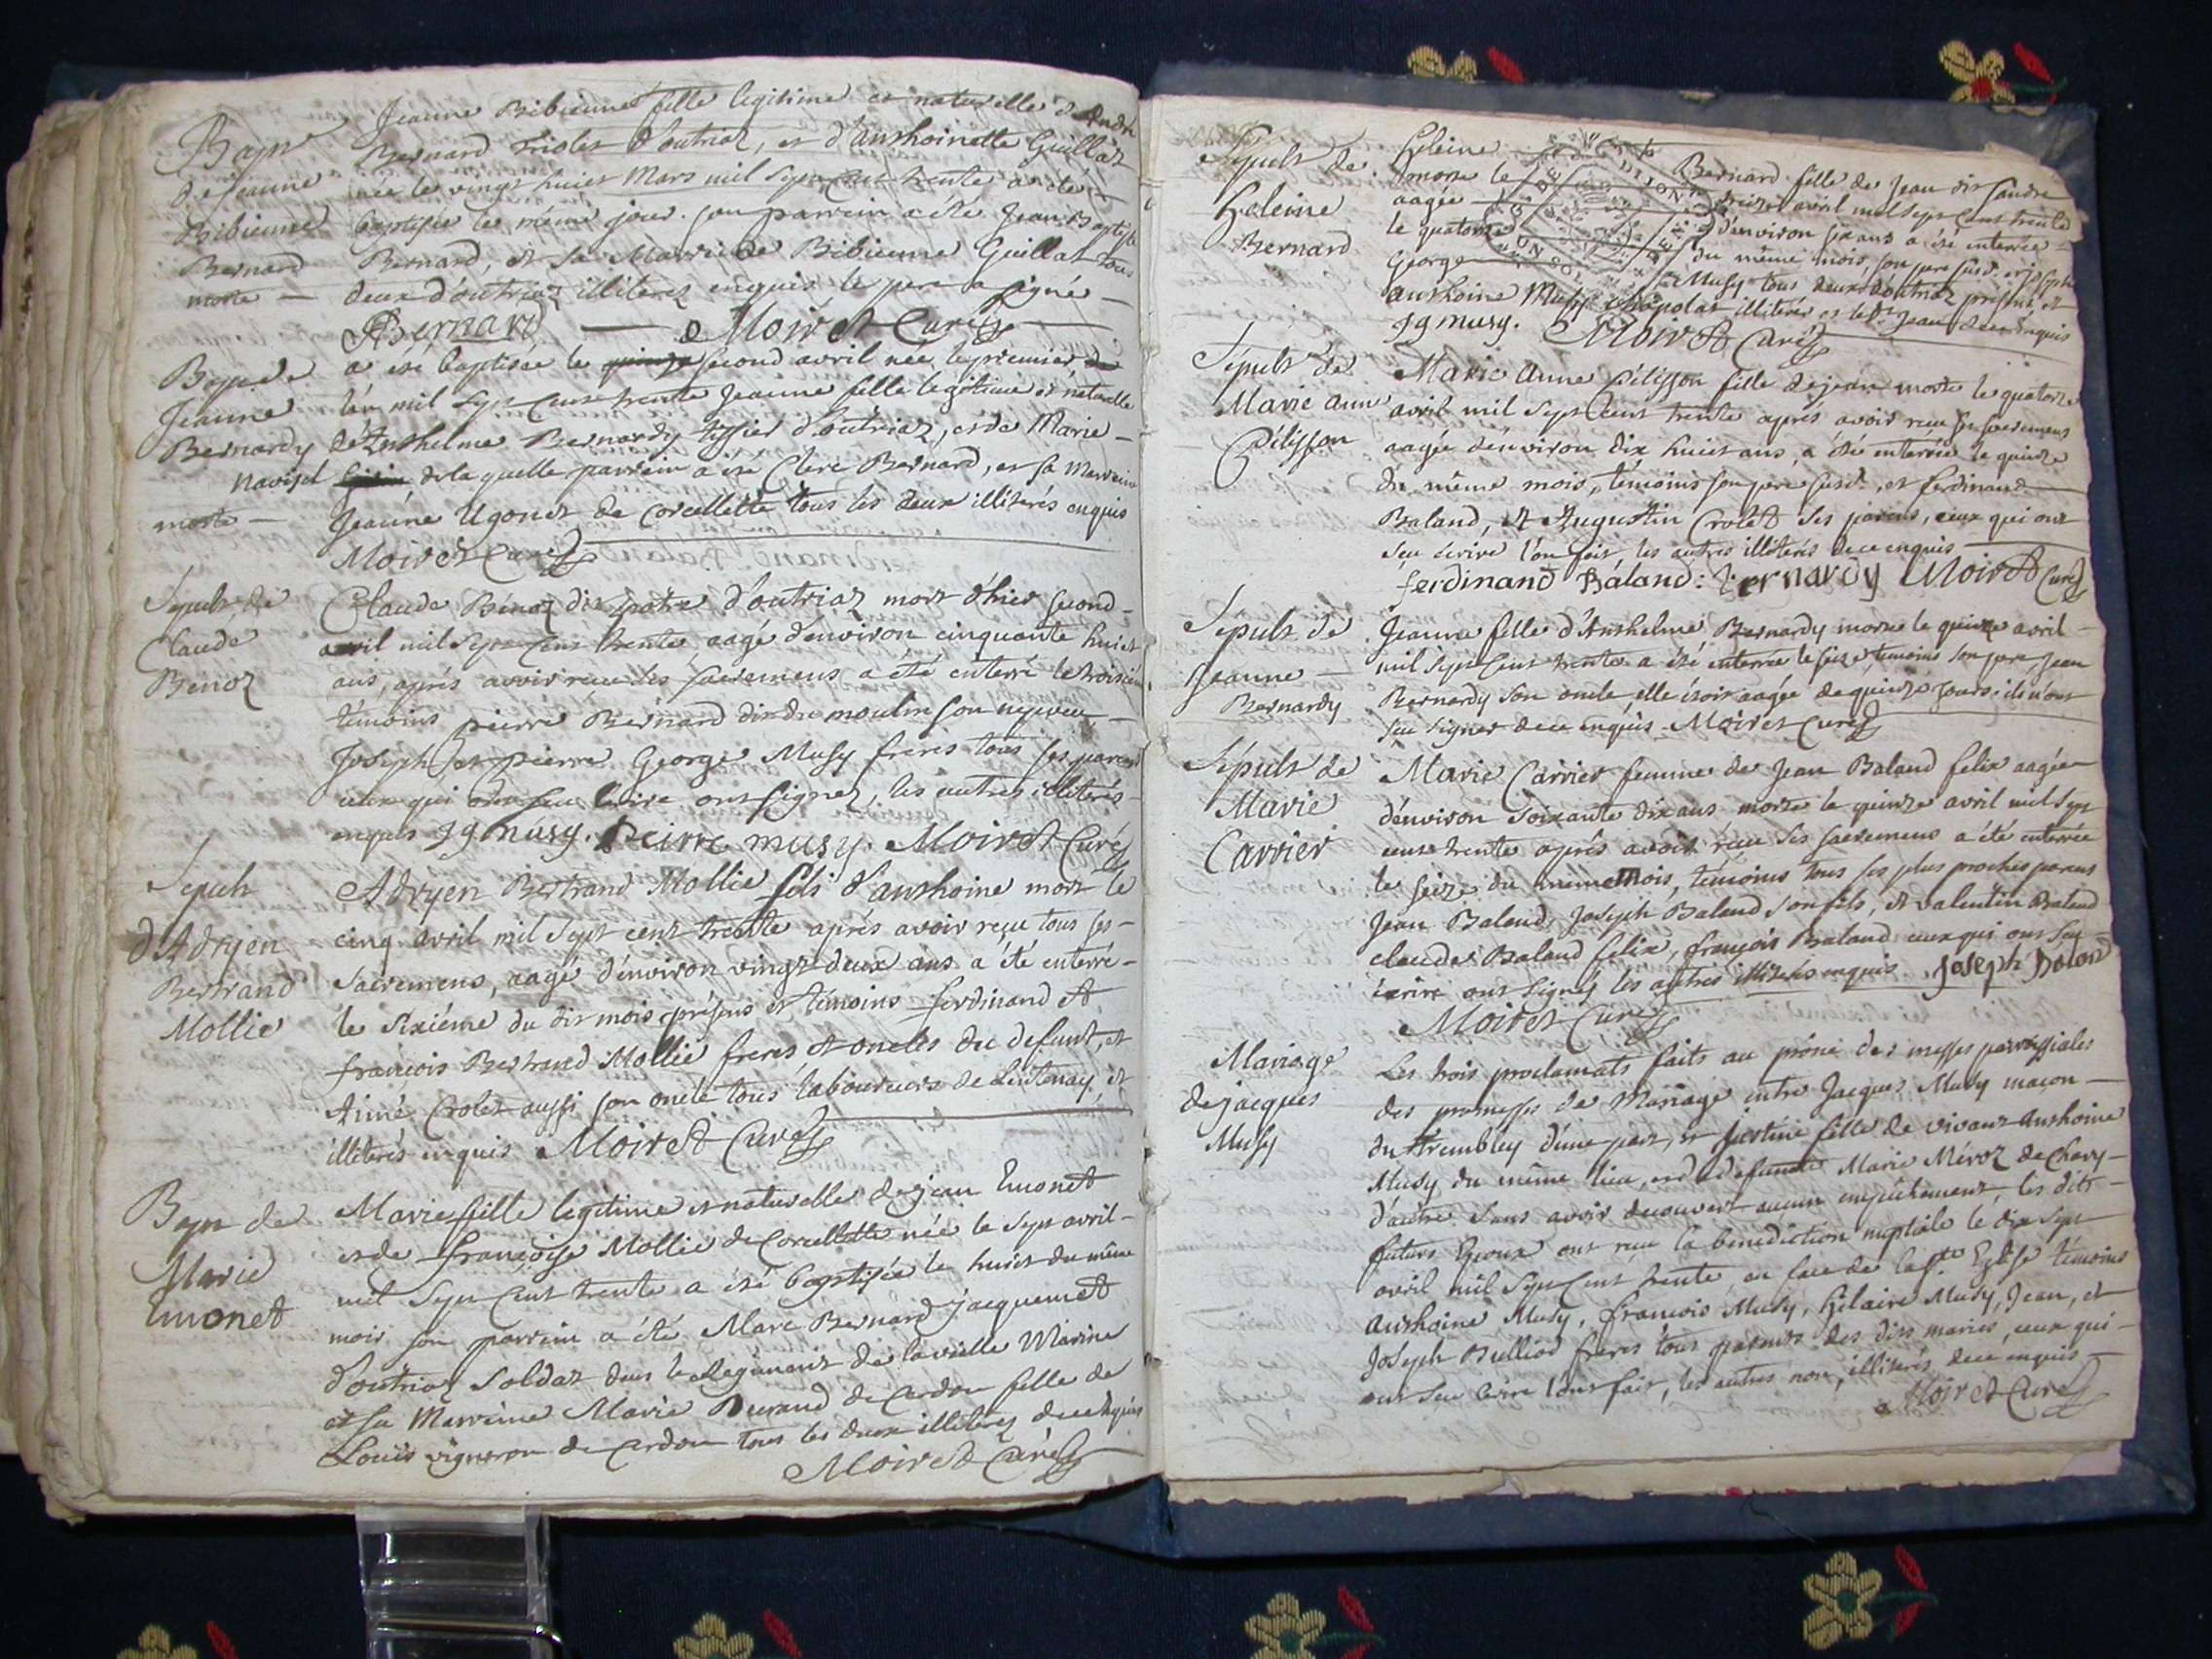 Bapt
de Jeanne
Bibienne
Bernard
morte —
Jeanne Bibienne fille legitime et naturelle d'André
Bernard Triolet d'outriaz, et d'anthoinette Guillat
née le vingt huict Mars mil Sept cent trente a été
baptisée le même jour. son parrein a été Jean Baptiste
Bernard, et sa Marreine Bibienne Guillat tous
deux d'outriaz illiterez enquis le pere a signé —
ABernard — Moiret Curé
Bapt de
Jeanne
Bernardy
morte —
a été baptisée le second avril née le premier de
l'an mil sept cent trente Jeanne fille legitime et naturelle
d'Anthelme Bernardy tissier d'outriaz, et de Marie —
navisel de laquelle parrein a été Clere Bernard, et sa Marreine
Jeanne Ugonet de Corcellette tous les deux illiterés enquis
Moiret Curé
Sépult de
Claude
Benoz
Claude Benoz dit patre d'outriaz mort d'hier second —
avril mil sept cent trente, aagé d'environ cinquante huict
ans, aprés avoir reçu les sacremens a été enterré le troisiéme
témoins pierre Bernard dit du moulin son nepveu —
Joseph et pierre George Musy freres tous ses parens
ceux qui ont seu ecrire ont signez, les autres illiterés —
enquis JGmusy. Peirre musy. Moiret Curé
Sepult
d'Adryen
Bertrand
Mollie
Adryen Bertrand Mollie fils d'anthoine mort le
cinq avril mil sept cent trente aprés avoir reçu tous ses —
sacremens, aagé d'environ vingt deux ans a été enterré —
le sixiéme du dit mois, présens et témoins ferdinand et
françois Bertrand Mollie freres et oncles du defunt, et
Aimé Crolet aussi son oncle tous laboureurs de Lentenay, et
illiterés enquis Moiret Curé
Bapt de
Marie
Emonet
Marie fille legitime et naturelle de jean Emonet
et de françoise Mollie de Corcellette née le sept avril —
mil sept cent trente a été baptisée le huict du même
mois son parrein a été Marc Bernard jacquemet
d'outriaz Soldat dans le Regiment de la vieille Marine
et sa Marreine Marie Durand de Cerdon fille de
Louis vigneron de Cerdon tous les deux illiterez de ce enquis
Moiret Curé
Sépult de
Heleine
Bernard
Heleine Bernard fille de Jean dit
morte le treize avril mil sept cent trente
aagée d'environ six ans a été enterrée
le quatorze du même mois, son pere susd. et joseph
George Musy tous deux d'outriaz présens, et
anthoine Musy illiterés et led. Jean de ce enquis
JGmusy. Moiret Curé
Sépult de
Marie anne
Pélisson
Marie Anne Pélisson fille de jean morte le quatorze
avril mil sept cent trente aprés avoir reçu ses sacremens
aagée d'environ dix huict ans, a été enterrée le quinze
du même mois, témoins son pere susd., et ferdinand
Baland, et Augustin Crolet ses parens, ceux qui ont
seu écrire l'on fait, les autres illiterés de ce enquis —
ferdinand Baland: Bernardy Moiret Curé
Sépult de
Jeanne —
Bernardy
Jeanne fille d'Anthelme Bernardy morte le quinze avril —
mil sept cent trente a été enterrée le seize, temoins son pere, Jean
Bernardy son oncle, elle étoit aagée de quinze jours ils n'ont
seu signer de ce enquis. Moiret Curé
Sépult de
Marie
Carrier
Marie Carrier femme de Jean Baland felix aagée
d'environ soixante dix ans morte le quinze avril mil sept
cent trente aprés avoir reçu ses sacremens a été enterrée
le seize du même mois, témoins tous ses plus proches parens
Jean Baland, Joseph Baland son fils, et valentin Baland
claude Baland felix, françois Baland ceux qui ont seu
écrire ont signéz les autres illiterés enquis. Joseph Baland
Moiret Curé
Mariage
de jacques
Musy
Les trois proclamats faits au prône des messes parroissiales
des promesses de Mariage entre Jacques Musy maçon —
du trembley d'une part, et justine fille de vivant anthoine
Musy du même lieu, et de defuncte Marie Méroz de Chevy —
d'autre sans avoir decouvert aucun empêchement, les dits —
futurs Epoux ont reçu la benediction nuptiale le dix sept
avril mil sept cent trente, en face de la ste Eglise témoins
anthoine Musy, françois Musy, hilaire Musy, Jean, et
Joseph Bulliod freres tous parents des dits mariés, ceux qui —
ont seu écrire l'ont fait, les autres non, illiterés de ce enquis —
Moiret Curé